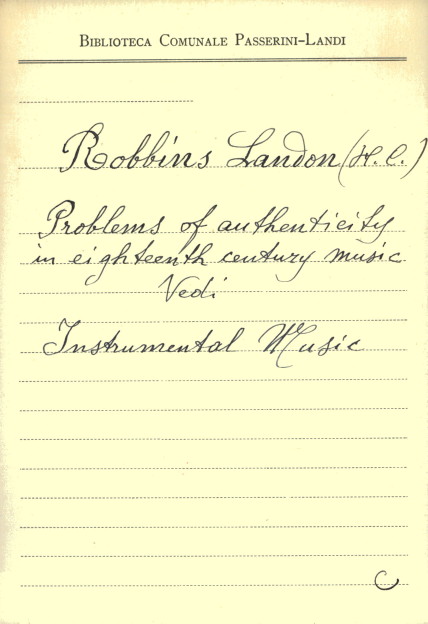 BIBLIOTECA COMUNALE PASSERINI-LANDI
Robbins Landon (H. C.)
Problems of authenticity
in eighteenth century music
Vedi
Instrumental Music
C